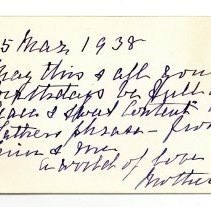 5 Mar, 1938
May this & all you
birthdays be full
Peace & sweet content
fathers phrase — fro
him & me
a world of love
Mother